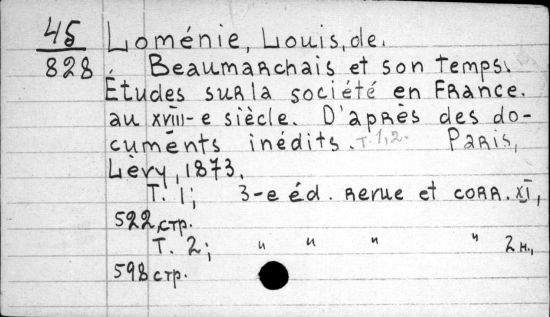 45 Loménie, Louis, de.
828 Beaumarchais et son temps.
Études sur la société en France.
au XVIII-e siècle. D'après des do-
cuments inédits. T. 1,2. Paris,
Lévy, 1873.
T. 1; 3-e éd. revue et corr. XI,
522 стр.
T. 2; " " " " 2 н.,
598 стр.